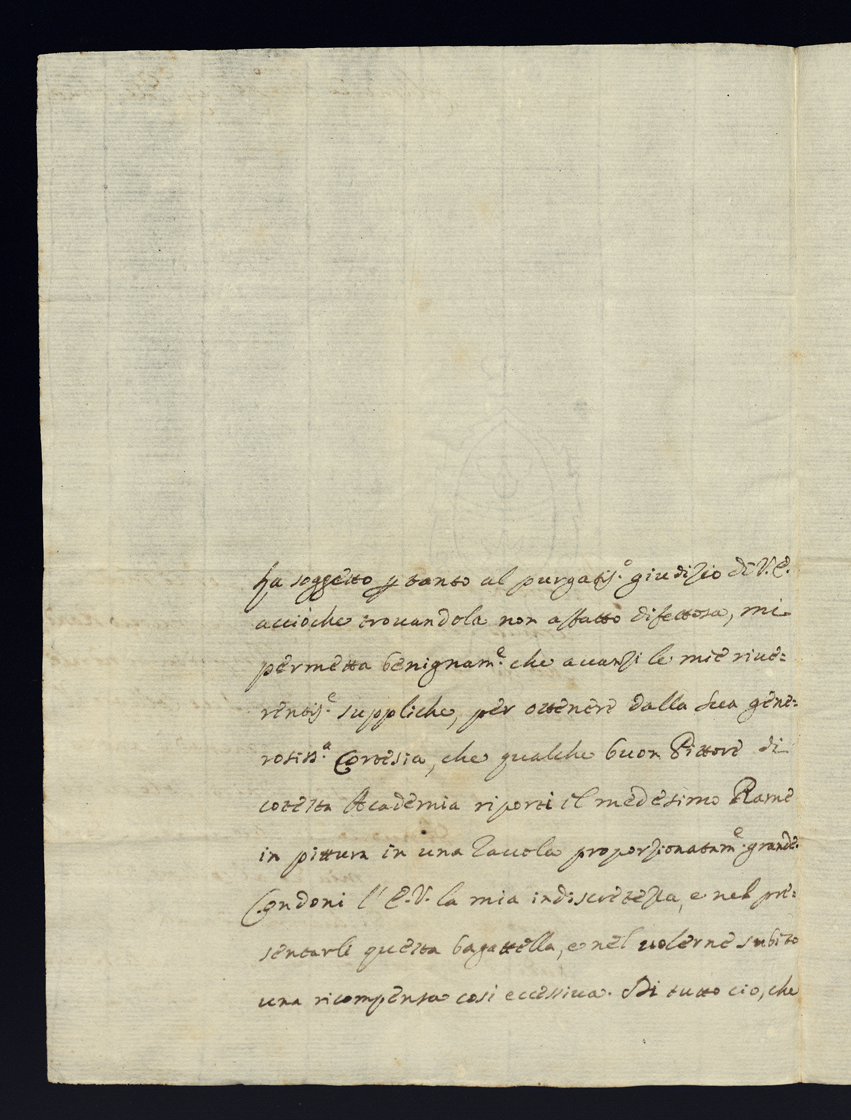 ha soggetto p tanto al purgatis.º giudizio di V.E.
acciòche trouandola non affatto difettosa, mi
permetta benignam.e che auanzi le mie riue=
rentis.e suppliche, per ottenere dalla Sua gene=
rosiss.a Cortesia, che qualche buon Pittore di
cotesta Academia riporti il medesimo Rame
in pittura in una Tauola proporzionatam.e grande.
Condoni l'E.V. la mia indiscretezza, e nel pre=
sentarle questa bagattella, e nel uolerne subito
una ricompensa così eccessiua. Di tutto ciò, che